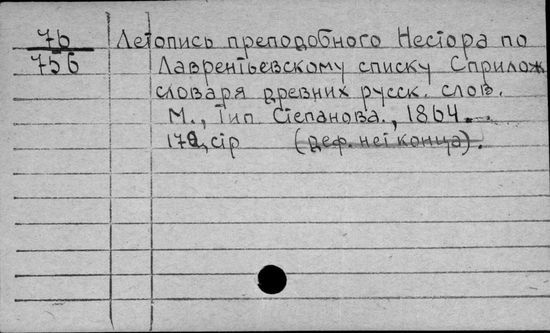 7б Летопись преподобного Нестора по
75б Лаврентьевскому списку С прилож.
словаря древних русск. слов.
М., Тип. Степанова., 1864.
стр (деф. нет конца).